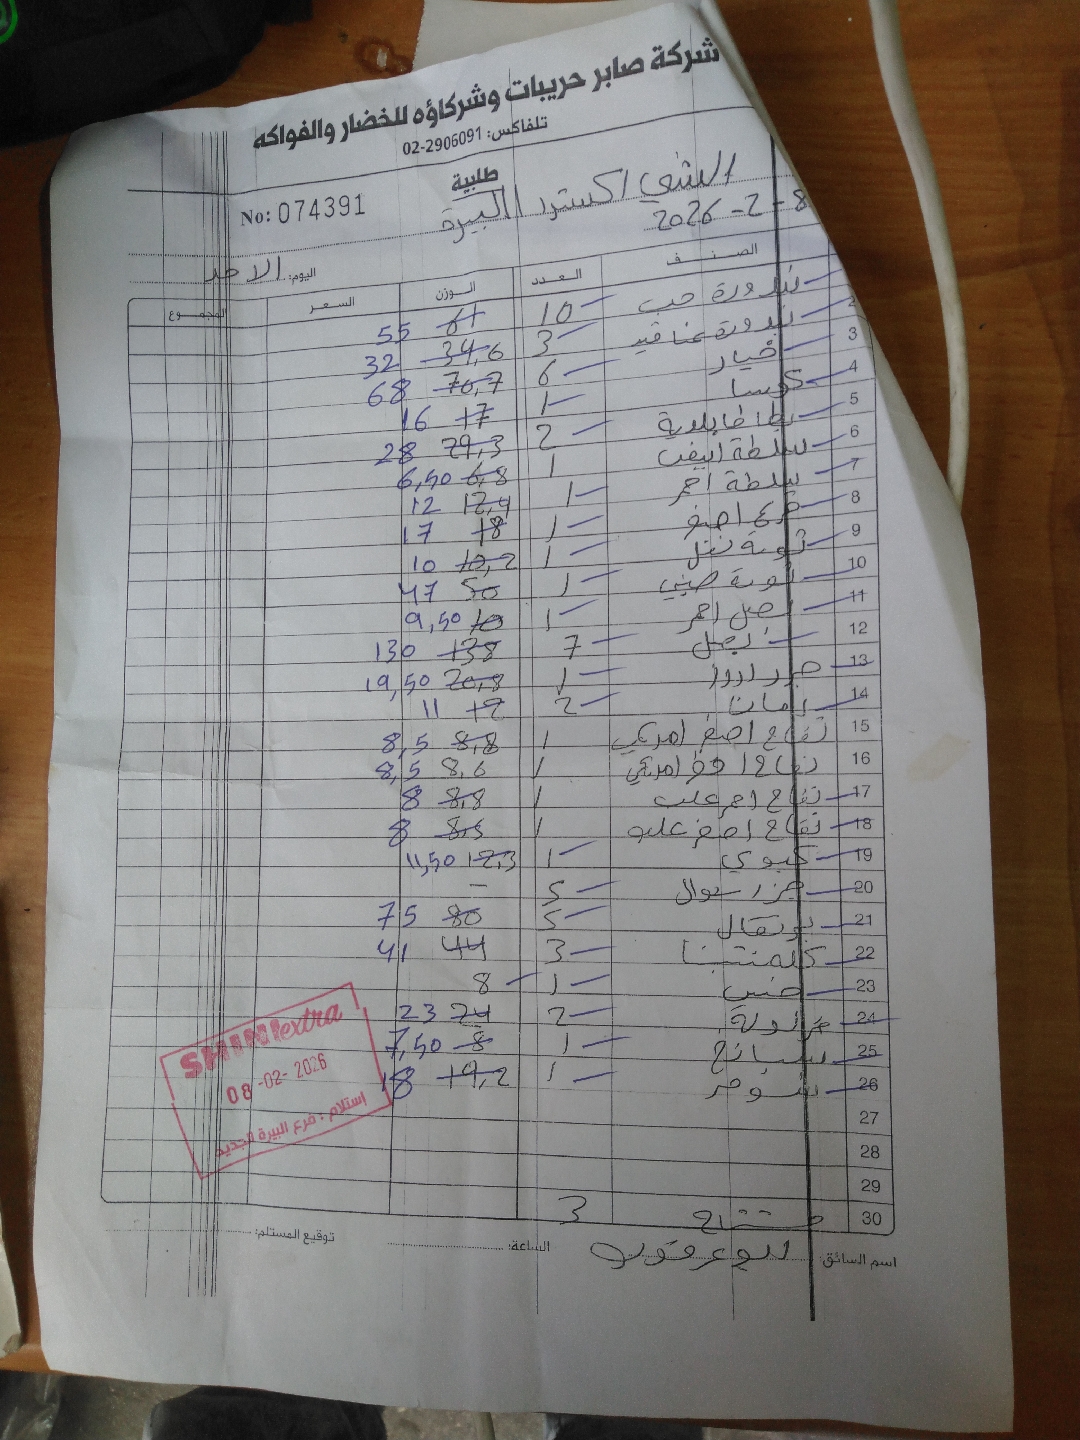 شركة صابر حريبات وشركاؤه للخضار والفواكه
تلفاكس: 02-2906091
طلبية
No: 074391
الشني اكسترا البيرة
2026-2-8
اليوم: الاحد
الصنف العدد الوزن السعر المجموع
بندورة حب 10 61 55
2 بندورة عناقيد 3 34,6 32
3 خيار 6 70,7 68
4 كوسا 1 17 16
5 بطاطا بلدية 2 29,3 28
6 سلطة ابيض 1 6,8 6,50
7 سلطة احمر 1 12,4 12
8 قرع اصفر 1 18 17
9 ثومة نتل 1 10,2 10
10 ثومة صيني 1 50 47
11 بصل احمر 1 10 9,50
12 بصل 7 138 130
13 1 20,8 19,50
14 رمان 2 12 11
15 تفاح اصفر امريكي 1 8,8 8,5
16 تفاح امريكي 1 8,6 8,5
17 تفاح احمر علب 1 8,8 8
18 تفاح اصفر علب 1 8,5 8
19 كيوي 1 12,3 11,50
20 جزر شوال 5 –
21 برتقال 5 80 75
22 كلمنتينا 3 44 41
23 خس 1 8
24 فراولة 2 24 23
25 سبانخ 1 8 7,50
26 شومر 1 19,2 18
27
28
29
30 3
SHINI extra
08-02-2026
إستلام : فرع البيرة الجديد
اسم السائق: الساعة: توقيع المستلم: